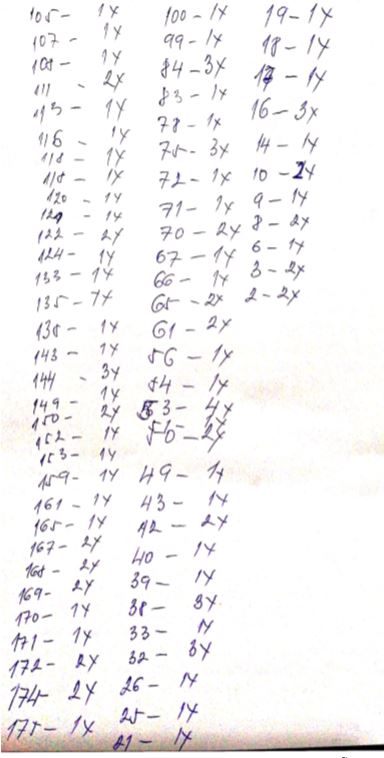 105 - 1x
107 - 1x
108 - 1x
111 - 2x
113 - 1x
116 - 1x
118 - 1x
118 - 1x
120 - 1x
121 - 1x
122 - 2x
124 - 1x
133 - 1x
135 - 1x
138 - 1x
143 - 1x
144 - 3x
149 - 1x
150 - 2x
152 - 1x
153 - 1x
159 - 1x
161 - 1x
165 - 1x
167 - 2x
168 - 2x
169 - 2x
170 - 1x
171 - 1x
172 - 2x
174 - 2x
175 - 1x
100 - 1x
99 - 1x
84 - 3x
83 - 1x
78 - 1x
75 - 3x
72 - 1x
71 - 1x
70 - 2x
67 - 1x
66 - 1x
65 - 2x
61 - 2x
56 - 1x
54 - 1x
53 - 4x
50 - 2x
49 - 1x
43 - 1x
42 - 2x
40 - 1x
39 - 1x
38 - 3x
33 - 1x
32 - 3x
26 - 1x
25 - 1x
21 - 1x
19 - 1x
18 - 1x
17 - 1x
16 - 3x
14 - 1x
10 - 2x
9 - 1x
8 - 2x
6 - 1x
3 - 2x
2 - 2x